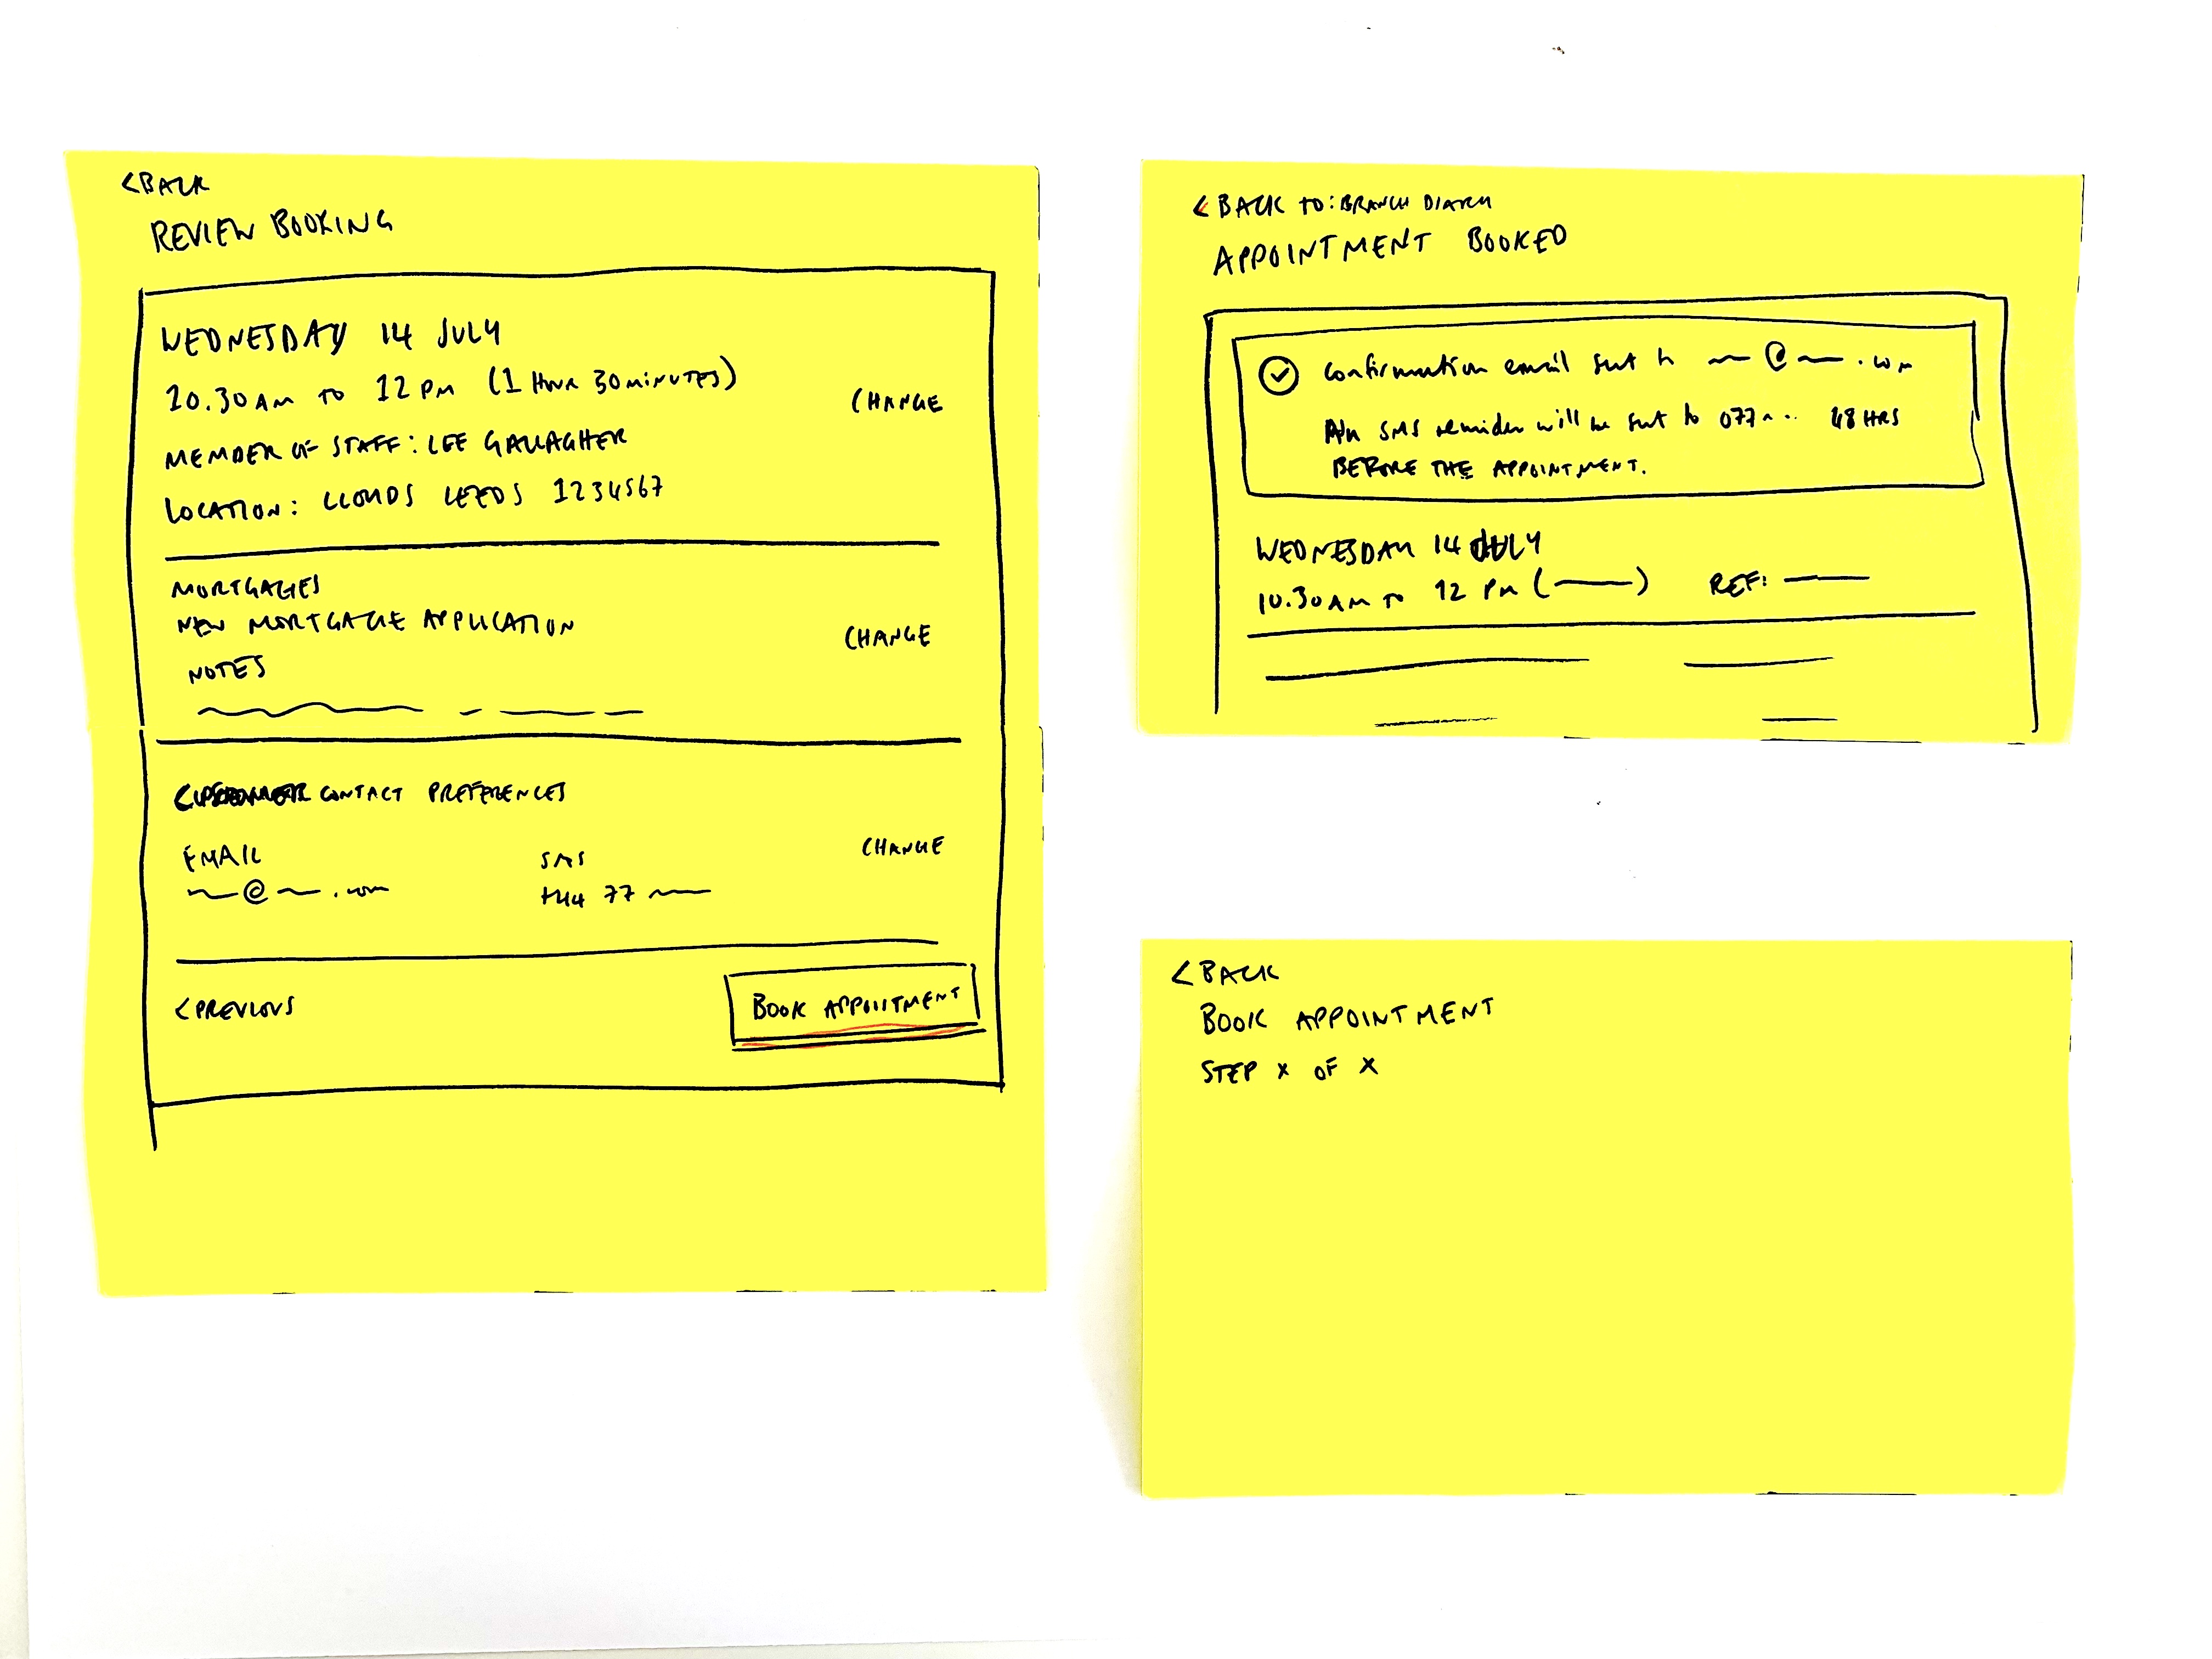 <BACK
REVIEW BOOKING
WEDNESDAY 14 JULY
10.30AM TO 12PM (1 HOUR 30 MINUTES)
CHANGE
MEMBER OF STAFF: LEE GALLAGHER
LOCATION: LLOYDS LEEDS 1234567
MORTGAGES
NEW MORTGAGE APPLICATION
CHANGE
NOTES
CONTACT PREFERENCES
EMAIL SMS CHANGE
@ .com +44 77
<PREVIOUS BOOK APPOINTMENT
<BACK TO: BRANCH DIARY
APPOINTMENT BOOKED
Confirmation email sent to @ .com
An SMS reminder will be sent to 077... 48 HRS
BEFORE THE APPOINTMENT.
WEDNESDAY 14 JULY
10.30AM TO 12 PM ( ) REF:
<BACK
BOOK APPOINTMENT
STEP X OF X